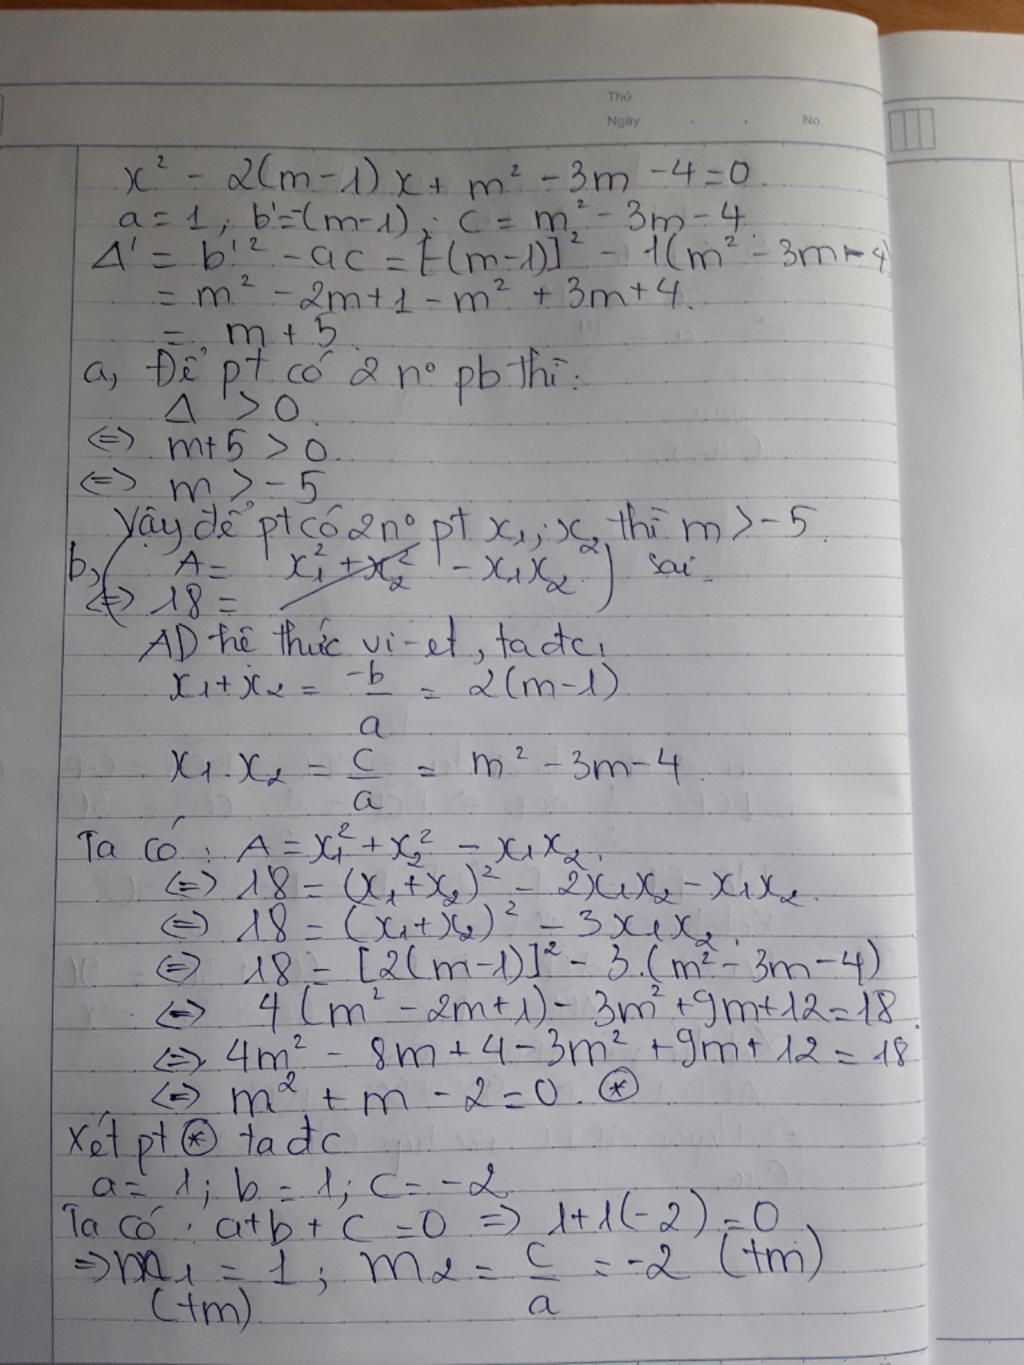 Thứ
Ngày . . No.
x² - 2(m-1)x + m² - 3m - 4 = 0
a = 1 ; b' = -(m-1) ; c = m² - 3m - 4
Δ' = b'² - ac = [-(m-1)]² - 1(m² - 3m - 4)
= m² - 2m + 1 - m² + 3m + 4.
= m + 5
a, Để pt có 2 n° pb thì:
Δ > 0
<=> m+5 > 0
<=> m > -5
Vậy để pt có 2 n° pt x₁; x₂ thì m > -5.
b, ( A = x₁² + x₂² - x₁x₂ ) sai
<=> 18 =
AD hê thức vi-et, ta đc:
x₁ + x₂ = -b/a = 2(m-1)
x₁ . x₂ = c/a = m² - 3m - 4
Ta có : A = x₁² + x₂² - x₁x₂.
<=> 18 = (x₁+x₂)² - 2x₁x₂ - x₁x₂.
<=> 18 = (x₁+x₂)² - 3x₁x₂.
<=> 18 = [2(m-1)]² - 3.(m² - 3m - 4)
<=> 4(m² - 2m+1) - 3m² + 9m + 12 = 18.
<=> 4m² - 8m + 4 - 3m² + 9m + 12 = 18
<=> m² + m - 2 = 0. (*)
Xét pt (*) ta đc
a = 1 ; b = 1 ; c = -2
Ta có : a+b+c = 0 => 1+1(-2) = 0
=> m₁ = 1 ; m₂ = c/a = -2 (tm)
(tm)